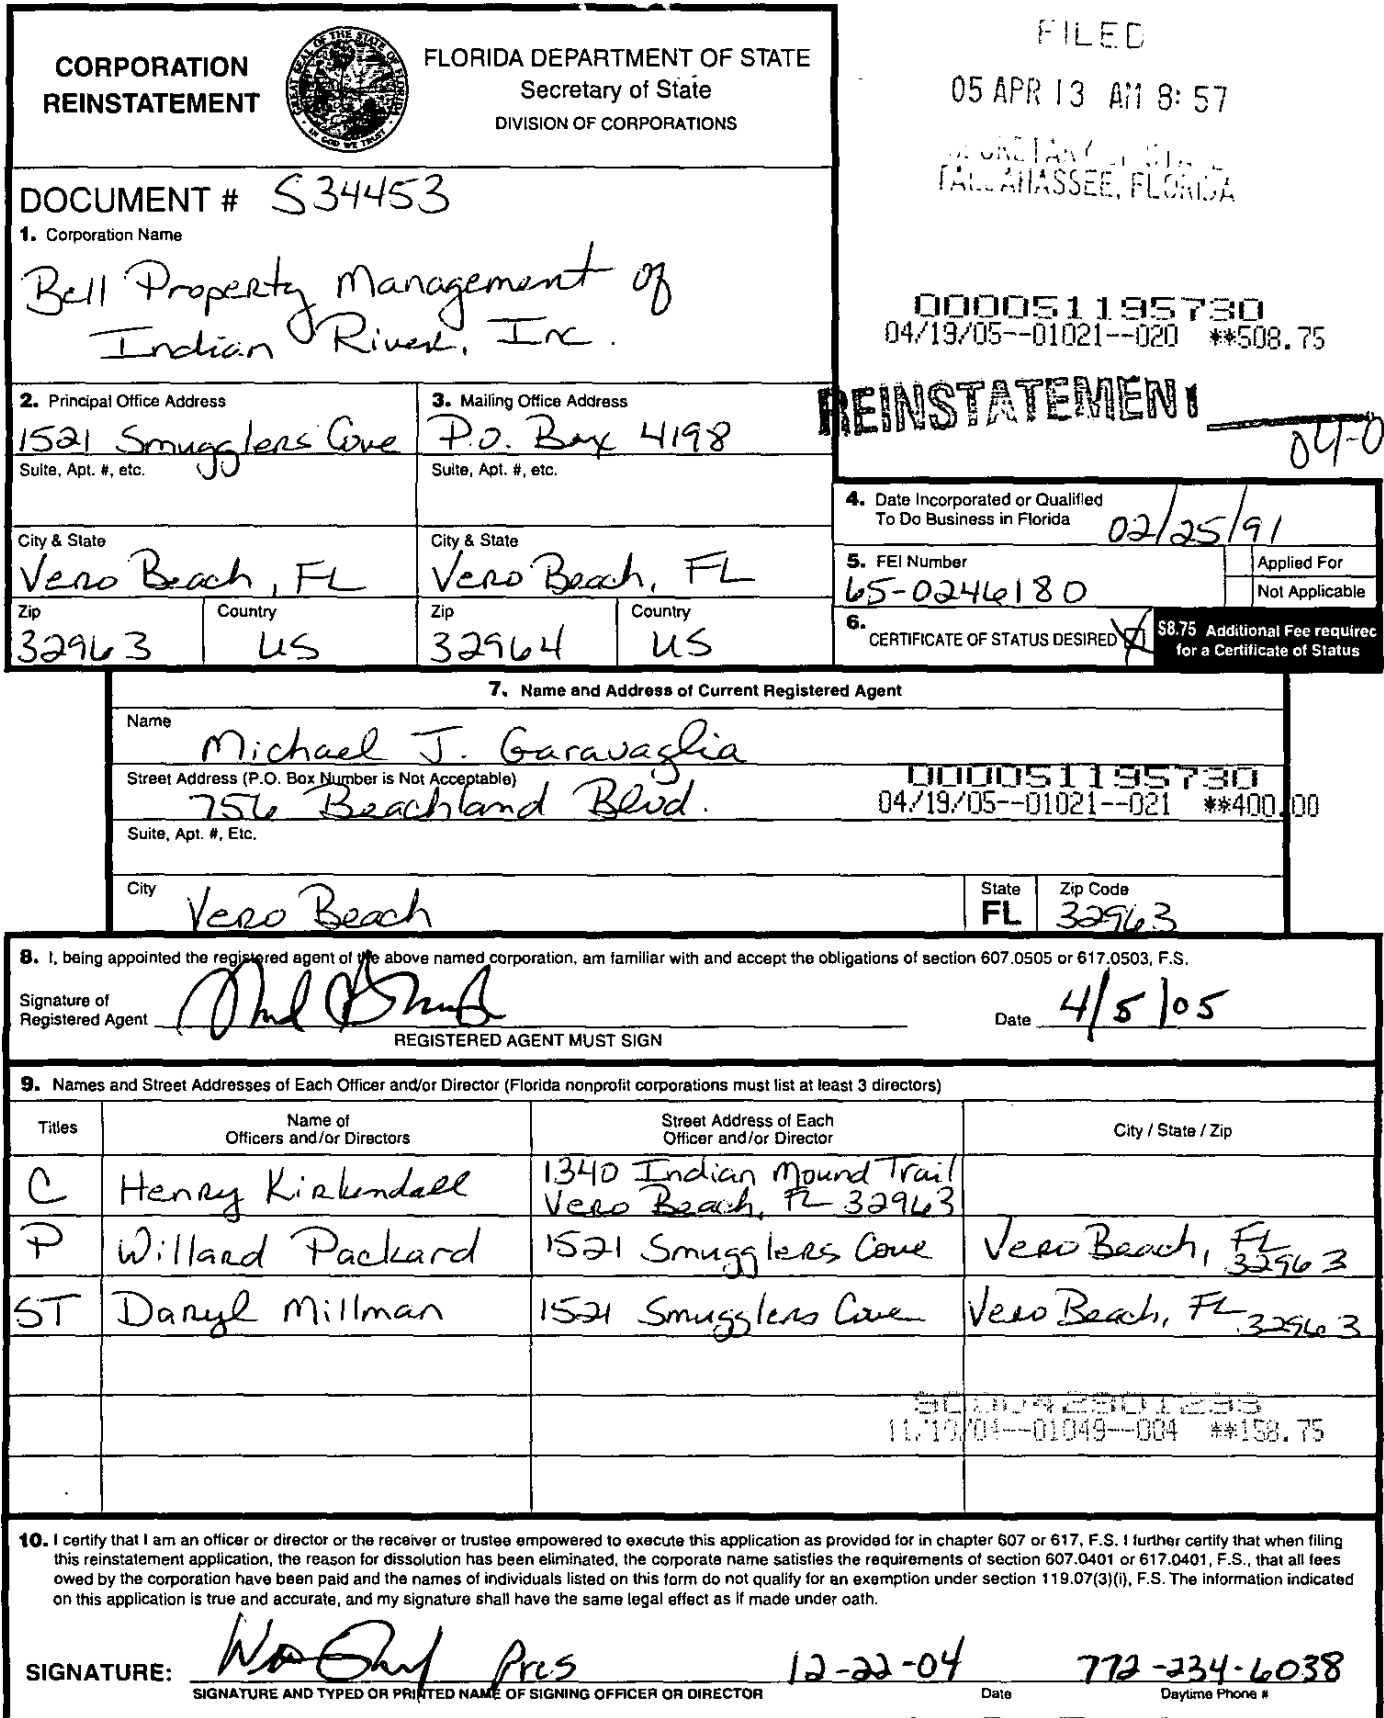 CORPORATION
REINSTATEMENT
FLORIDA DEPARTMENT OF STATE
Secretary of State
DIVISION OF CORPORATIONS
FILED
05 APR 13 AM 8:57
TALLAHASSEE, FLORIDA
DOCUMENT # S34453
1. Corporation Name
Bell Property Management of
Indian River, Inc.
000051195730
04/19/05--01021--020 **508.75
REINSTATEMENT
04-0
2. Principal Office Address
1521 Smugglers Cove
Suite, Apt. #, etc.
City & State
Vero Beach, FL
Zip
32963
Country
US
3. Mailing Office Address
P.O. Box 4198
Suite, Apt. #, etc.
City & State
Vero Beach, FL
Zip
32964
Country
US
4. Date Incorporated or Qualified
To Do Business in Florida 02/25/91
5. FEI Number
65-0246180
Applied For
Not Applicable
6.
CERTIFICATE OF STATUS DESIRED
$8.75 Additional Fee required
for a Certificate of Status
7. Name and Address of Current Registered Agent
Name
Michael J. Garavaglia
Street Address (P.O. Box Number is Not Acceptable)
756 Beachland Blvd.
000051195730
04/19/05--01021--021 **400.00
Suite, Apt. #, Etc.
City
Vero Beach
State
FL
Zip Code
32963
8. I, being appointed the registered agent of the above named corporation, am familiar with and accept the obligations of section 607.0505 or 617.0503, F.S.
Signature of
Registered Agent
Date 4/5/05
REGISTERED AGENT MUST SIGN
9. Names and Street Addresses of Each Officer and/or Director (Florida nonprofit corporations must list at least 3 directors)
Titles
Name of
Officers and/or Directors
Street Address of Each
Officer and/or Director
City / State / Zip
C Henry Kirkendall 1340 Indian Mound Trail
Vero Beach, FL 32963
P Willard Packard 1521 Smugglers Cove Vero Beach, FL 32963
ST Daryl Millman 1521 Smugglers Cove Vero Beach, FL 32963
11/19/04--01049--004 **158.75
10. I certify that I am an officer or director or the receiver or trustee empowered to execute this application as provided for in chapter 607 or 617, F.S. I further certify that when filing
this reinstatement application, the reason for dissolution has been eliminated, the corporate name satisfies the requirements of section 607.0401 or 617.0401, F.S., that all fees
owed by the corporation have been paid and the names of individuals listed on this form do not qualify for an exemption under section 119.07(3)(i), F.S. The information indicated
on this application is true and accurate, and my signature shall have the same legal effect as if made under oath.
SIGNATURE: Pres 12-22-04 772-234-6038
SIGNATURE AND TYPED OR PRINTED NAME OF SIGNING OFFICER OR DIRECTOR
Date
Daytime Phone #